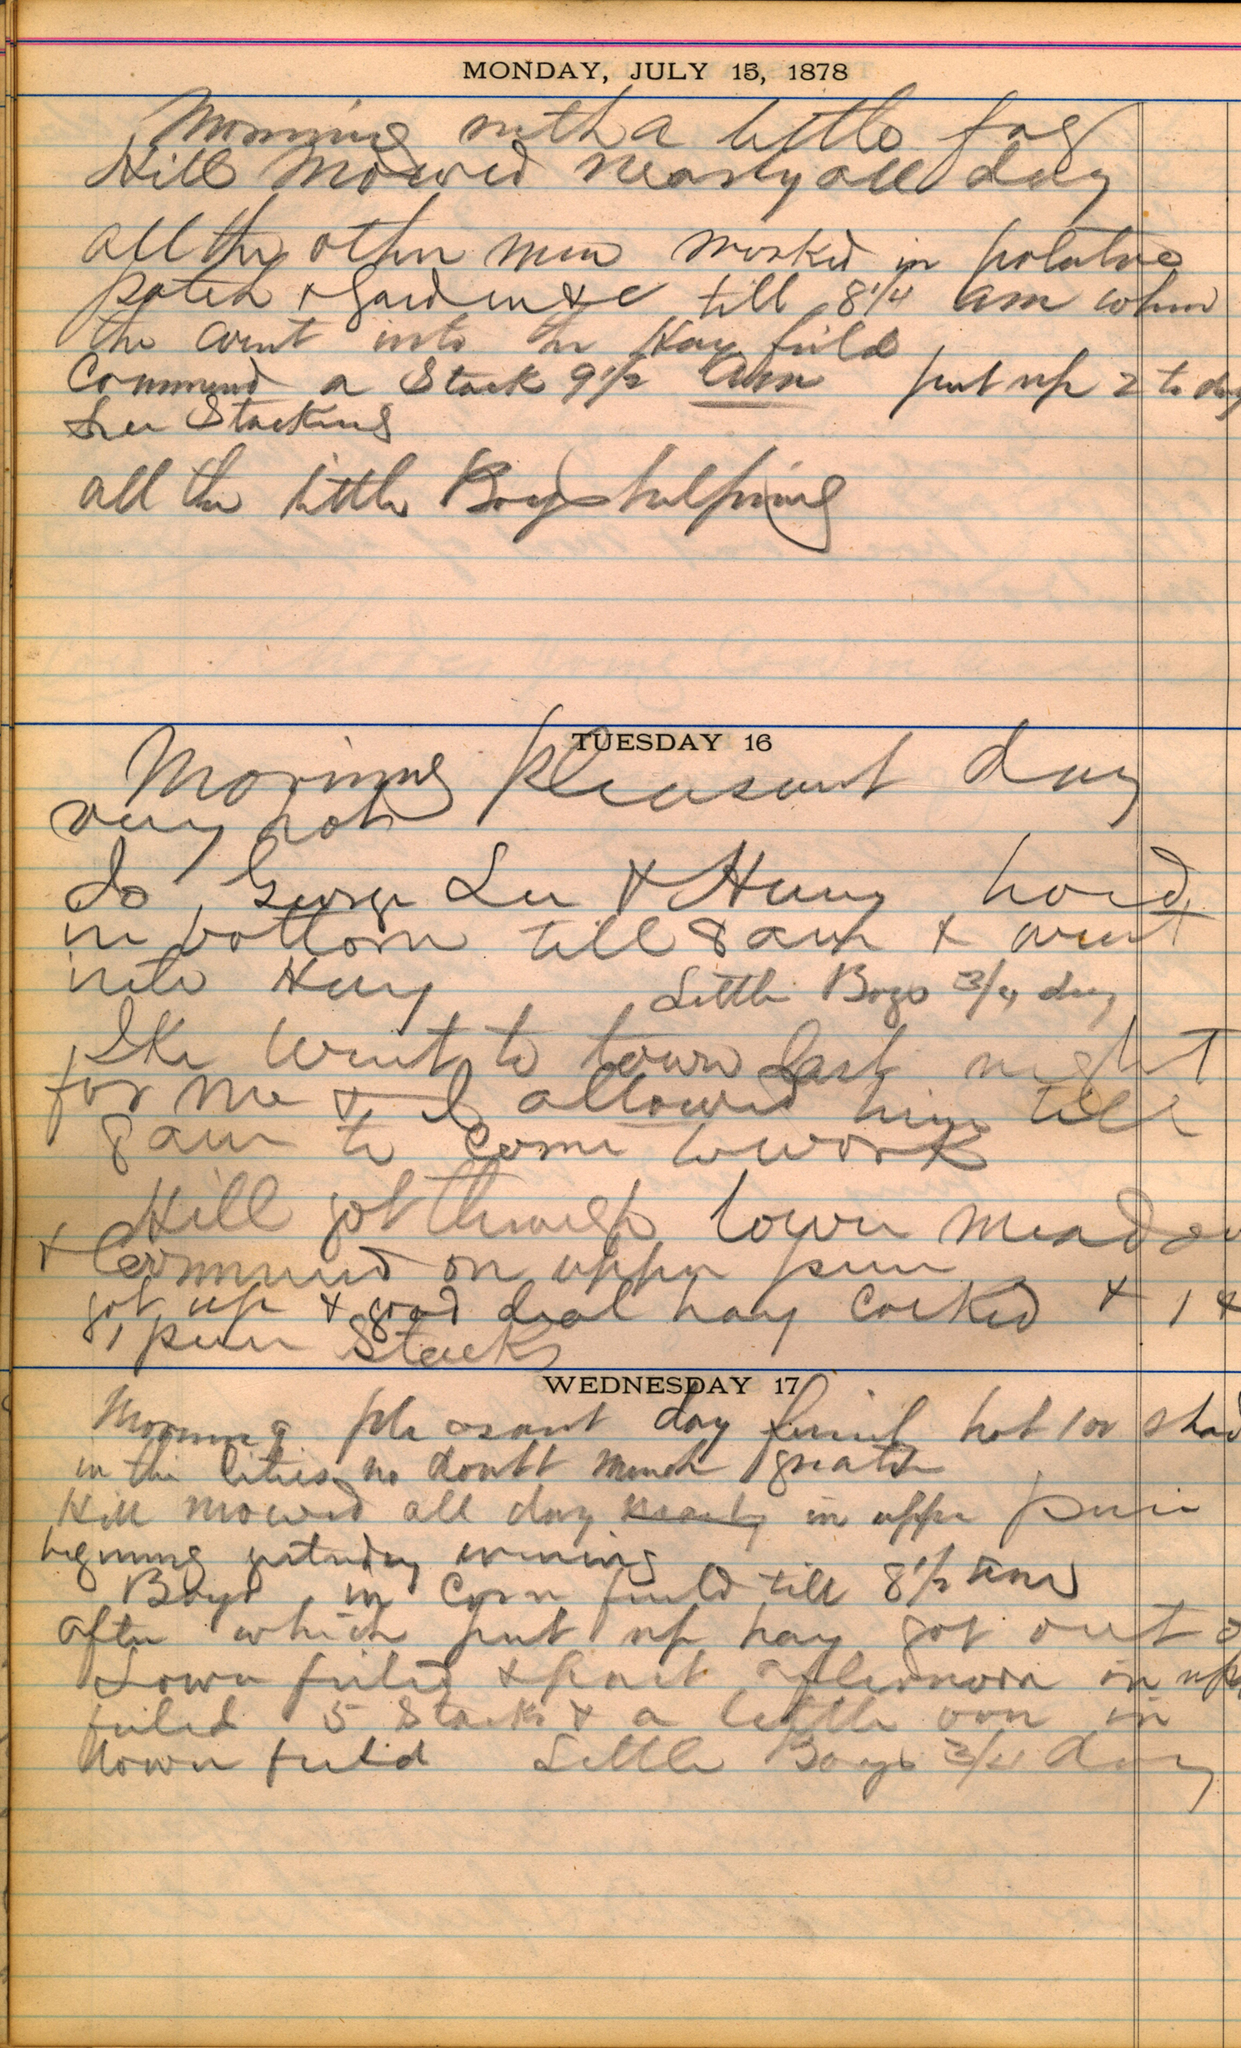 MONDAY, JULY 15, 1878
Morning with a little fog
Hill Mowed nearly all day
all the other men worked in potatoe
patch & Garden &c till 8 1/4 am when
the went into the Hay field
Commend a Stack 9 1/2 am put up 2 to day
Lee Stacking
all the little Boys helping
TUESDAY 16
Morning pleasant day
very hot
Jo George Lee & Henry hoed
in bottom till 8 am & went
into Hay Little Boys 3/4 day
Ike went to town last night
for me & I allowed him till
8 am to come to work
Hill got through lower meadow
& Commend on upper
got up & good deal hay cocked & 1 &
1 Stack
WEDNESDAY 17
Morning pleasant day hot 100 shade
in the Cities no doubt much greater
Hill mowed all day nearly in upper
begining yesterday evening
Boys in Corn field till 8 1/2 am
after which put up hay got out of
Lower field & part afternoon in upper
field 5 Stacks & a little one in
lower field Little Boys 3/4 day